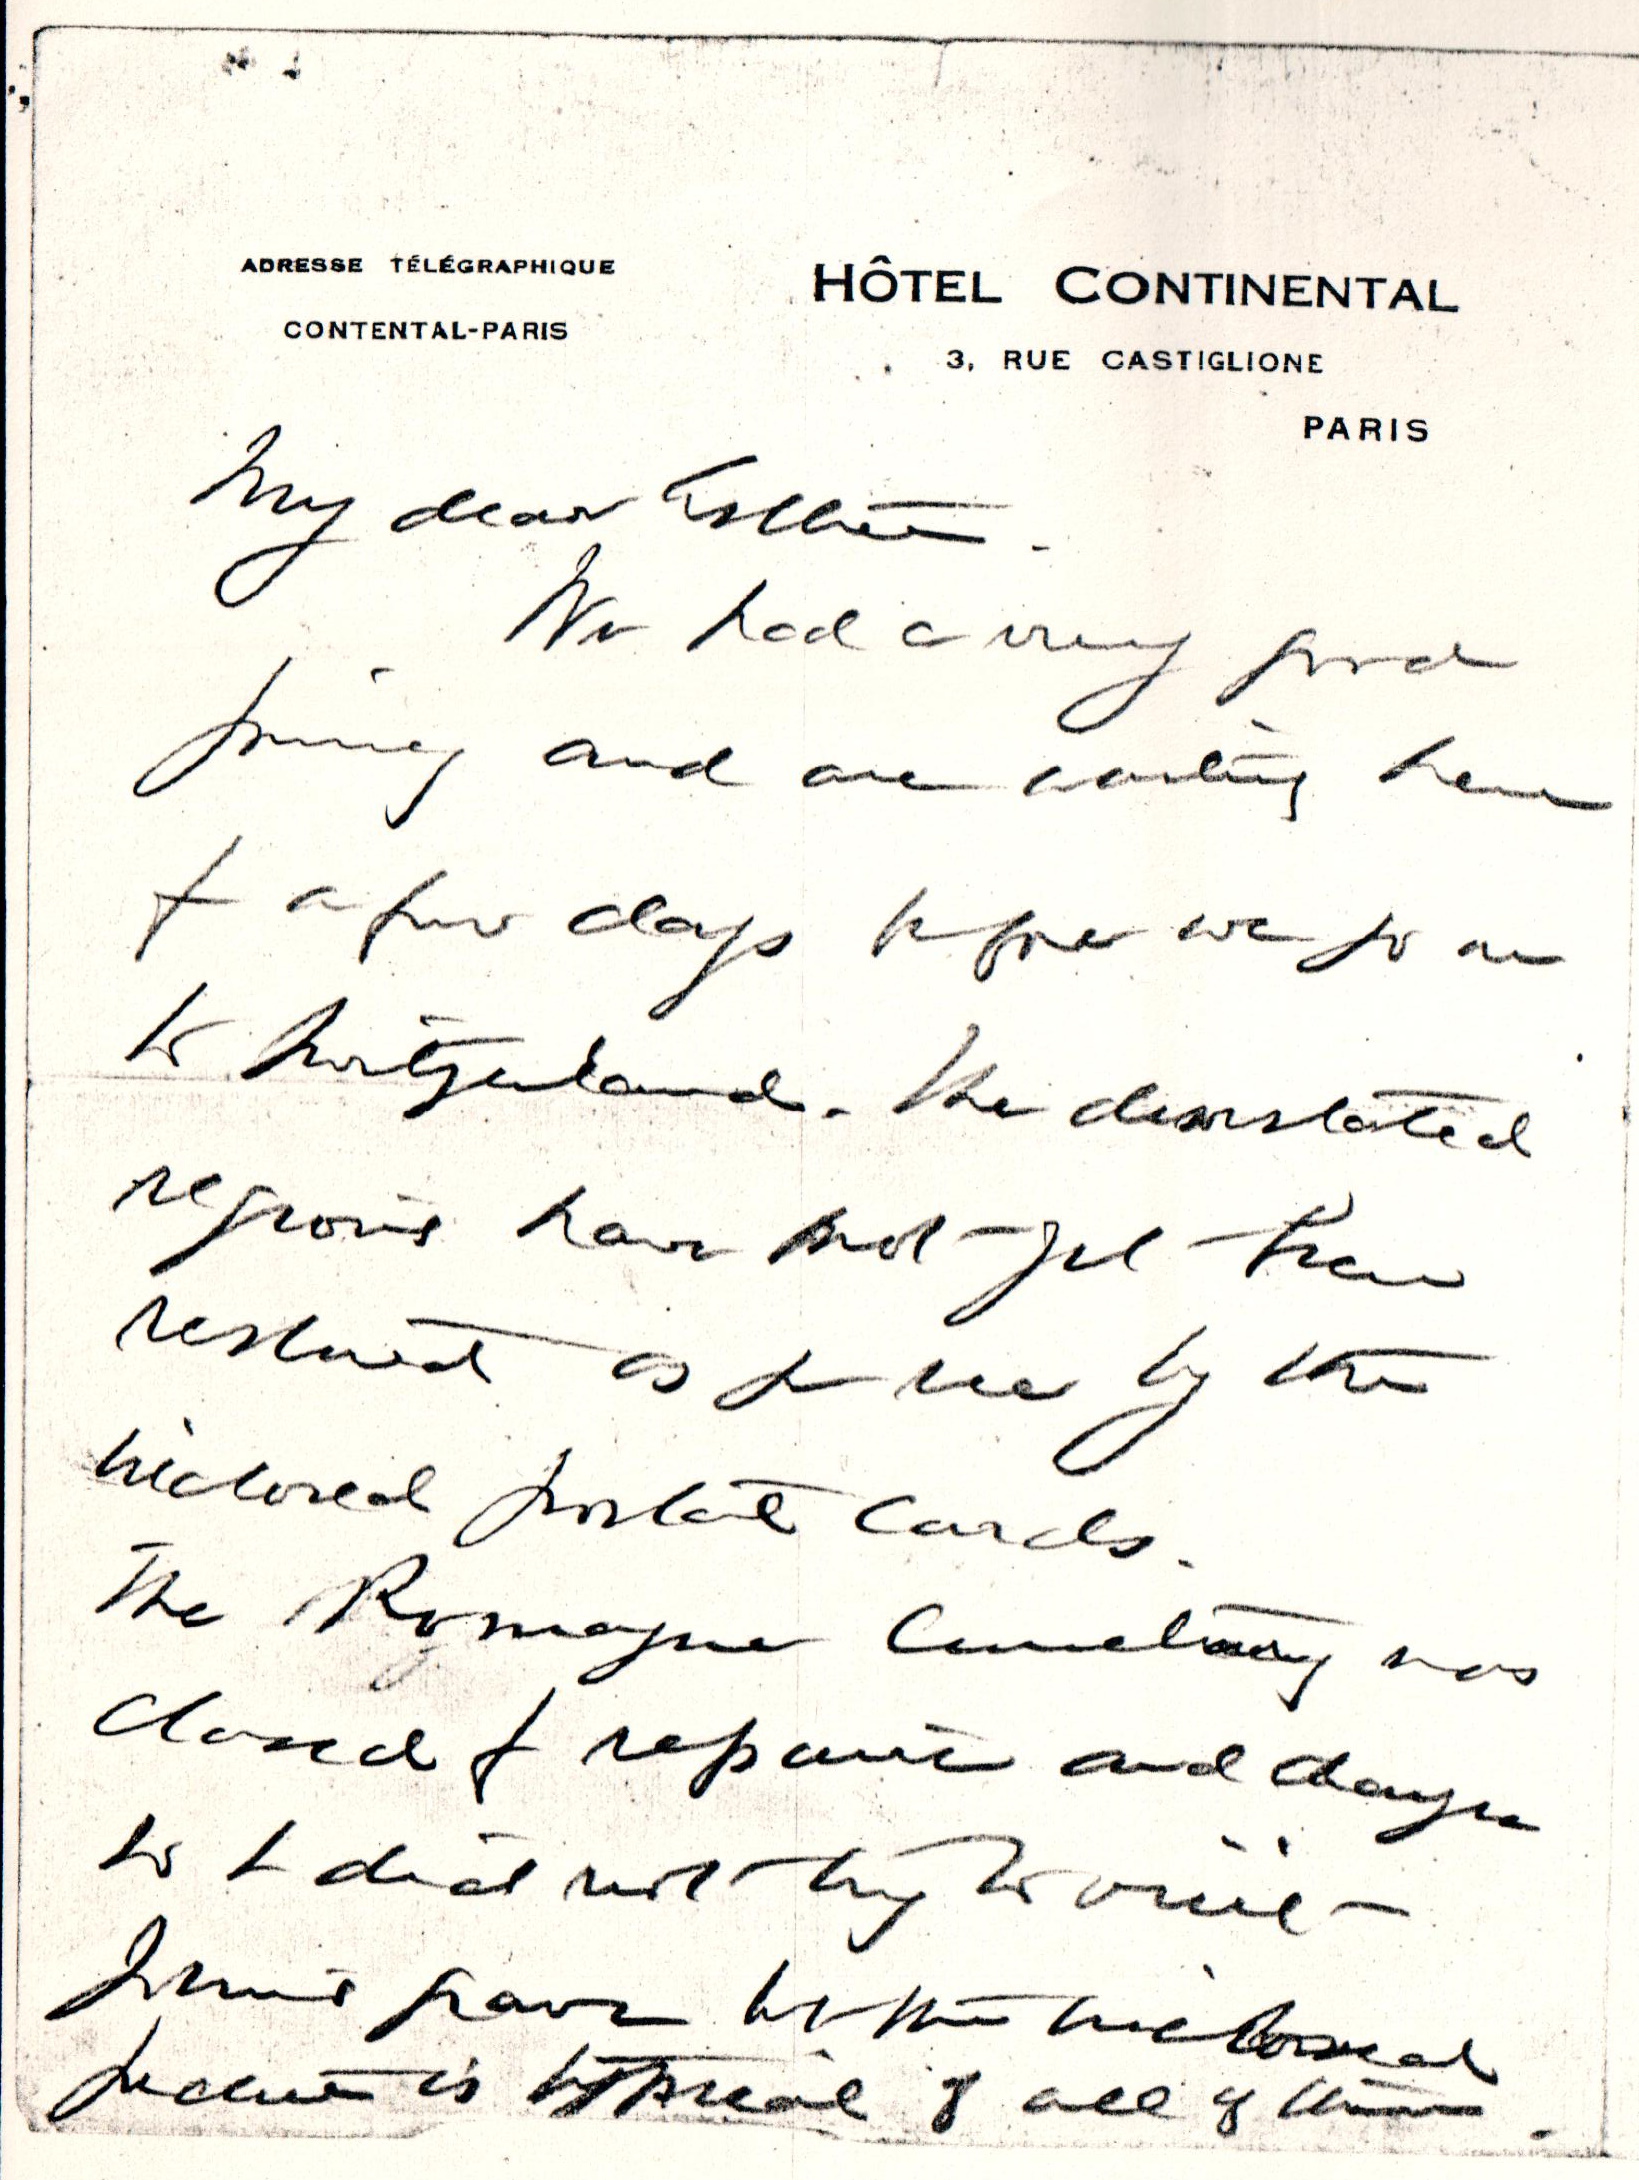 ADRESSE TÉLÉGRAPHIQUE
CONTENTAL-PARIS
HÔTEL CONTINENTAL
3, RUE CASTIGLIONE
PARIS
My dear Esther.
We had a very good
journey and are waiting here
for a few days before we go on
to Switzerland. The devastated
regions have not yet been
restored as you see by the
inclosed postal cards.
The Romagne Cemetery was
closed for repairs and change
so I did not try to visit
grave but the inclosed
picture is typical of all of them.